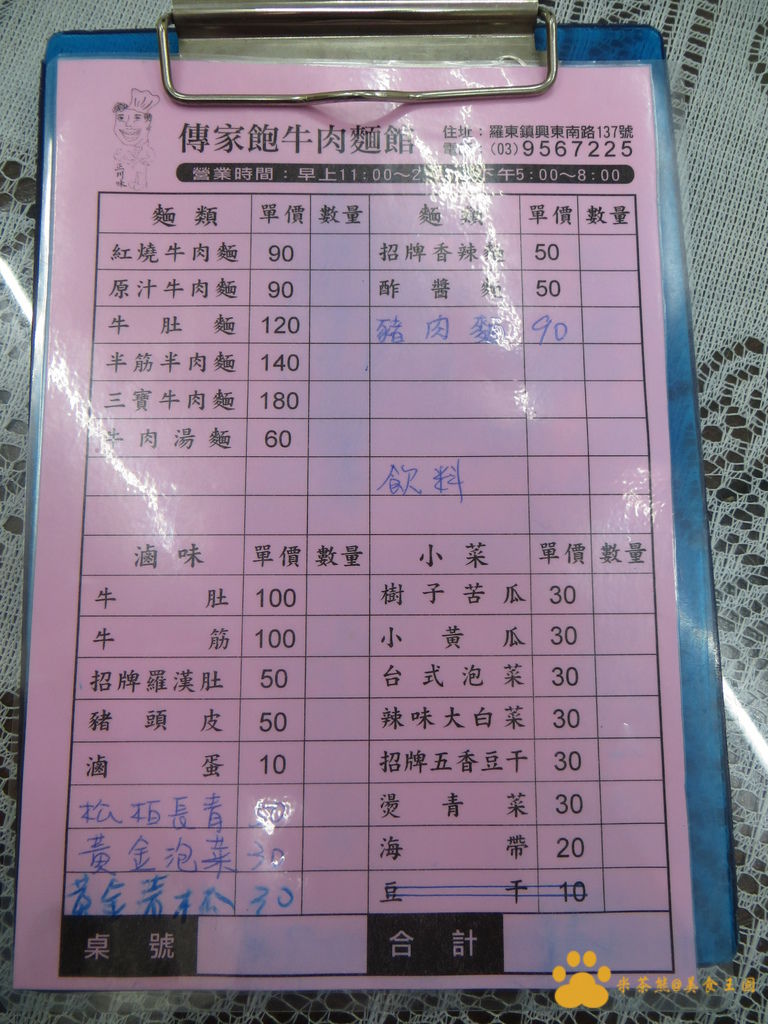 傳家飽牛肉麵館
住址：羅東鎮興東南路137號
電 ：(03)9567225
正川味
營業時間：早上11:00～2 下午5:00～8:00
麵類 單價 數量 麵類 單價 數量
紅燒牛肉麵 90 招牌香辣麵 50
原汁牛肉麵 90 酢醬麵 50
牛肚麵 120 豬肉麵 90
半筋半肉麵 140
三寶牛肉麵 180
牛肉湯麵 60
飲料
滷味 單價 數量 小菜 單價 數量
牛肚 100 樹子苦瓜 30
牛筋 100 小黃瓜 30
招牌羅漢肚 50 台式泡菜 30
豬頭皮 50 辣味大白菜 30
滷蛋 10 招牌五香豆干 30
松柏長青 燙青菜 30
黃金泡菜 30 海帶 20
黃金青木瓜 30 豆干 10
桌號 合計
米茶熊@美食王國